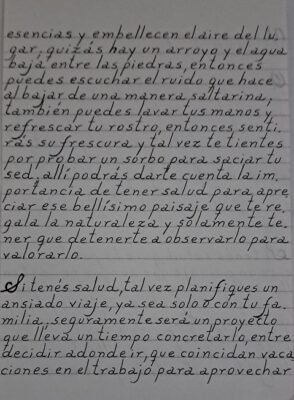 esencias y embellecen el aire del lu.
gar, quizás hay un arroyo y el agua
baja entre las piedras, entonces
puedes escuchar el ruido que hace
al bajar de una manera saltarina,
también puedes lavar tus manos y
refrescar tu rostro, entonces senti.
rás su frescura y tal vez te tientes
por probar un sorbo para saciar tu
sed, allí podrás darte cuenta la im.
portancia de tener salud para apre
ciar ese bellísimo paisaje que te re.
gala la naturaleza y solamente te.
ner que detenerte a observarlo para
valorarlo.
Si tenés salud, tal vez planifiques un
ansiado viaje, ya sea solo o con tu fa.
milia, seguramente será un proyecto
que lleva un tiempo concretarlo, entre
decidir adonde ir, que coincidan vaca
ciones en el trabajo para aprovechar